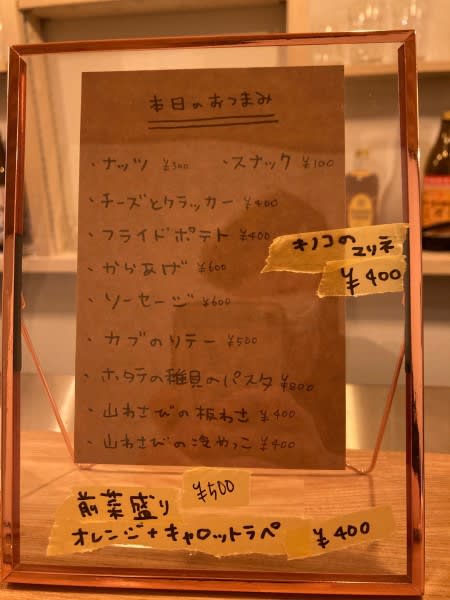 本日のおつまみ
・ナッツ ¥300 ・スナック ¥100
・チーズとクラッカー ¥400
・フライドポテト ¥400
・からあげ ¥600
・ソーセージ ¥600
・カブのソテー ¥500
・ホタテの稚貝のパスタ ¥800
・山わさびの板わさ ¥400
・山わさびの冷やっこ ¥400
キノコの
マリネ
¥400
前菜盛り ¥500
オレンジ+キャロットラペ ¥400